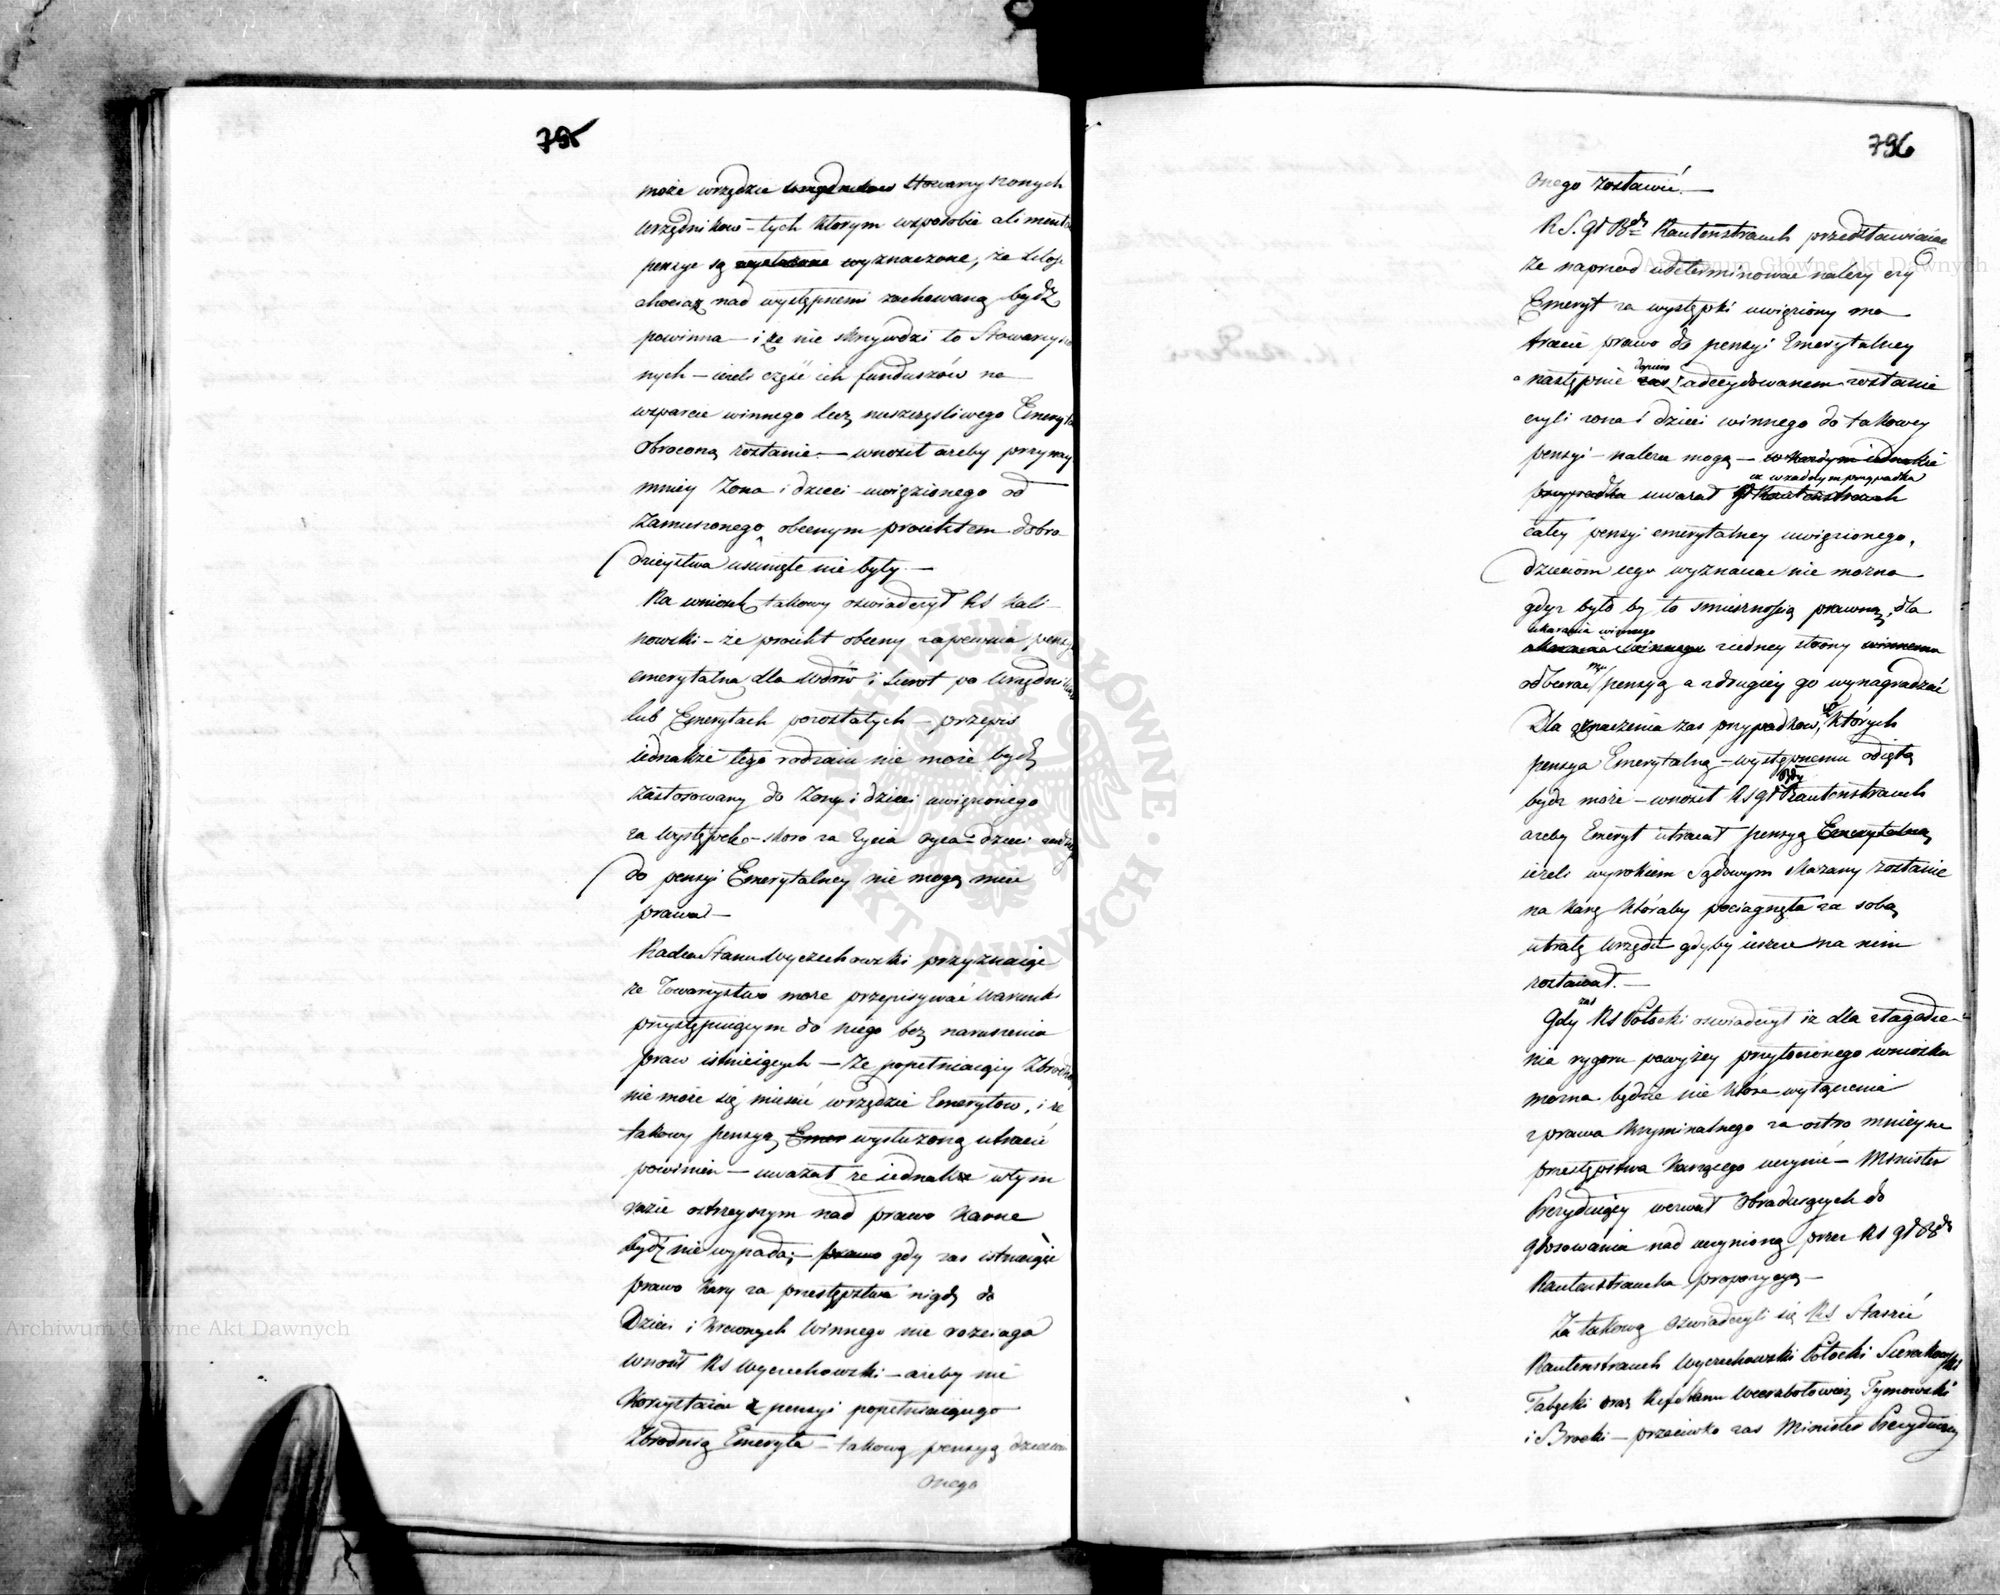 795
może w rzędzie urzędników Stowarzyszonych
Urzędników – tych którym w sposobie aliment
pensye są wyznaczone, że litość
chociaż nad występnemi zachowaną bydź
powinna – i że nie skrzywdzi to Stowarzyszo
nych – ieżeli część ich funduszów na
wsparcie winnego lecz nieszczęśliwego Emeryta
obroconą zostanie. – wnosił ażeby przynay
mniey Żona i dzieci uwięzionego od
zamierzonego obecnym proiektem dobro
dzieystwa usunięte nie były. –
Na wniosek takowy oświadczył RS Kali
nowski – że proiekt obecny zapewnia pensyą
emerytalną dla Wdów i Sierot po Urzędnikach
lub Emerytach pozostałych – przepis
iednakże tego rodzaiu nie może bydź
zastosowany do Żony i dzieci uwięzionego
za występek – skoro za życia oyca – dzieci żadnego
do pensyi Emerytalney nie mogą mieć
prawa –
Radca Stanu Wyczechowski przyznaiąc
że Towarzystwo może przepisywać warunki
przystępuiącym do niego bez naruszenia
praw istnieiących – że popełniaiący Zbrodnią
nie może się mieścić w rzędzie Emerytow, i że
takowy pensyą Emer wysłużoną utracić
powinien – uważał że iednakże w tym
razie ostrzeyszym nad prawo karne
bydź nie wypada; – prawo gdy zas istnieiące
prawo kary za przestępstwa nigdy do
Dzieci i Krewnych Winnego nie rozciąga
wnosił RS Wyczechowski – ażeby nie
korzystaiąc z pensyi popełniaiącego
Zbrodnią Emeryta – takową pensyą dzieciom
onego
796
onego zostawić. –
R S. gł Bdy Rautenstrauch przedstawiaiąc
że naprzod udeterminować należy czy
Emeryt za występki uwięziony ma
tracić prawo do pensyi Emerytalney
dopiero
a następnie zas zadecydowanem zostanie
czyli żona i dzieci winnego do takowey
pensyi – należeć mogą – w każdym iednakże
w każdym przypadku
przypadku uważał gł Rautenstrauch
całey pensyi emerytalney uwięzionego,
dzieciom iego wyznaczać nie można
gdyż było by to śmiesznością prawną, dla
ukarania winnego
ukarania winnego z iedney strony winnemu
mu
odbierać pensyą a z drugiey go wynagradzać
Dla oznaczenia zas przypadkow, w których
pensya Emerytalna – występnemu odiętą
Bdy
bydz może – wnosił RS gł Rautenstrauch
ażeby Emeryt utracał pensyą Emerytalną
ieżeli wyrokiem Sądowym skazany zostanie
na karę któraby pociągnęła za sobą
utratę Urzędu gdyby ieszcze na nim
zostawał. –
zas
Gdy RS Potocki oświadczył iż dla złagodze
nia rygoru powyżey przytoczonego wniosku
można będzie nie które wyłączenia
z prawa kryminalnego za ostro mnieysze
przestępstwa karzącego uczynić – Minister
Prezyduiący wezwał Obraduiących do
głosowania nad uczynioną przez RS gł Bdy
Rautenstraucha propozycyą –
Za takową oświadczyli się RS Staszic
Rautenstrauch Wyczechowski Potocki Sierakowski
Tabęcki oraz Ref Stanu Wierzbołowicz Tymowski
i Brocki – przeciwko zas Minister Prezyduiący
Archiwum Główne Akt Dawnych
Archiwum Główne Akt Dawnych
ARCHIWUM GŁÓWNE · AKT DAWNYCH ·